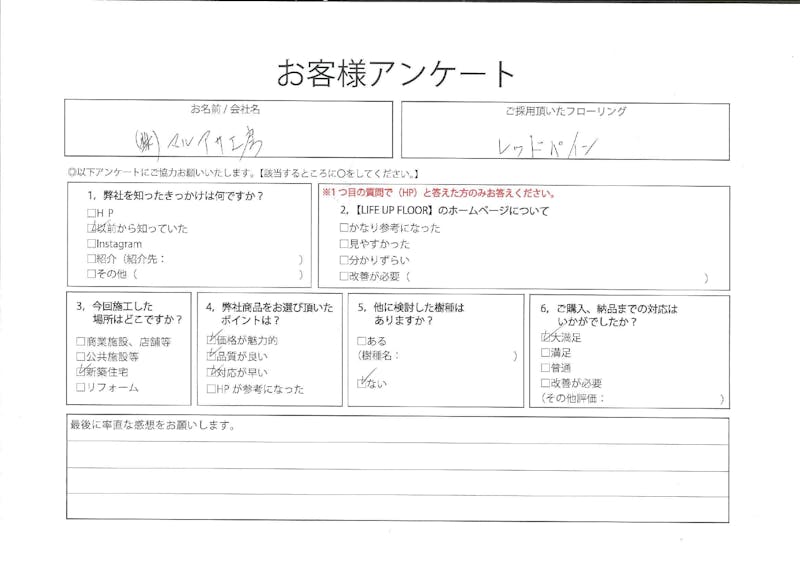 お客様アンケート
お名前 / 会社名
(株) マルアサ工房
ご採用頂いたフローリング
レッドパイン
◎以下アンケートにご協力お願いいたします。【該当するところに○をしてください。】
1，弊社を知ったきっかけは何ですか？
□ＨＰ
☑以前から知っていた
□Instagram
□紹介（紹介先：　　　）
□その他（　　　）
※1つ目の質問で（HP）と答えた方のみお答えください。
2，【LIFE UP FLOOR】のホームページについて
□かなり参考になった
□見やすかった
□分かりずらい
□改善が必要（　　　）
3，今回施工した
場所はどこですか？
□商業施設、店舗等
□公共施設等
☑新築住宅
□リフォーム
4，弊社商品をお選び頂いた
ポイントは？
☑価格が魅力的
☑品質が良い
☑対応が早い
□HPが参考になった
5，他に検討した樹種は
ありますか？
□ある
（樹種名：　　　）
☑ない
6，ご購入、納品までの対応は
いかがでしたか？
☑大満足
□満足
□普通
□改善が必要
（その他評価：　　　）
最後に率直な感想をお願いします。